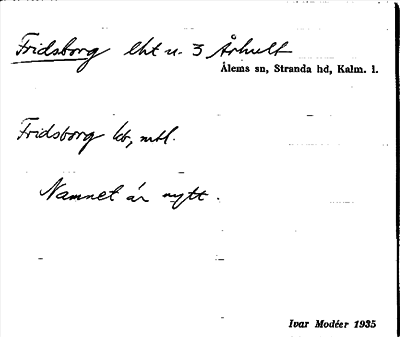 Fridsborg lht u. 3 Århult
Ålems sn, Stranda hd, Kalm. l.
Fridsborg lb, mtl.
Namnet är nytt.
Ivar Modéer 1935